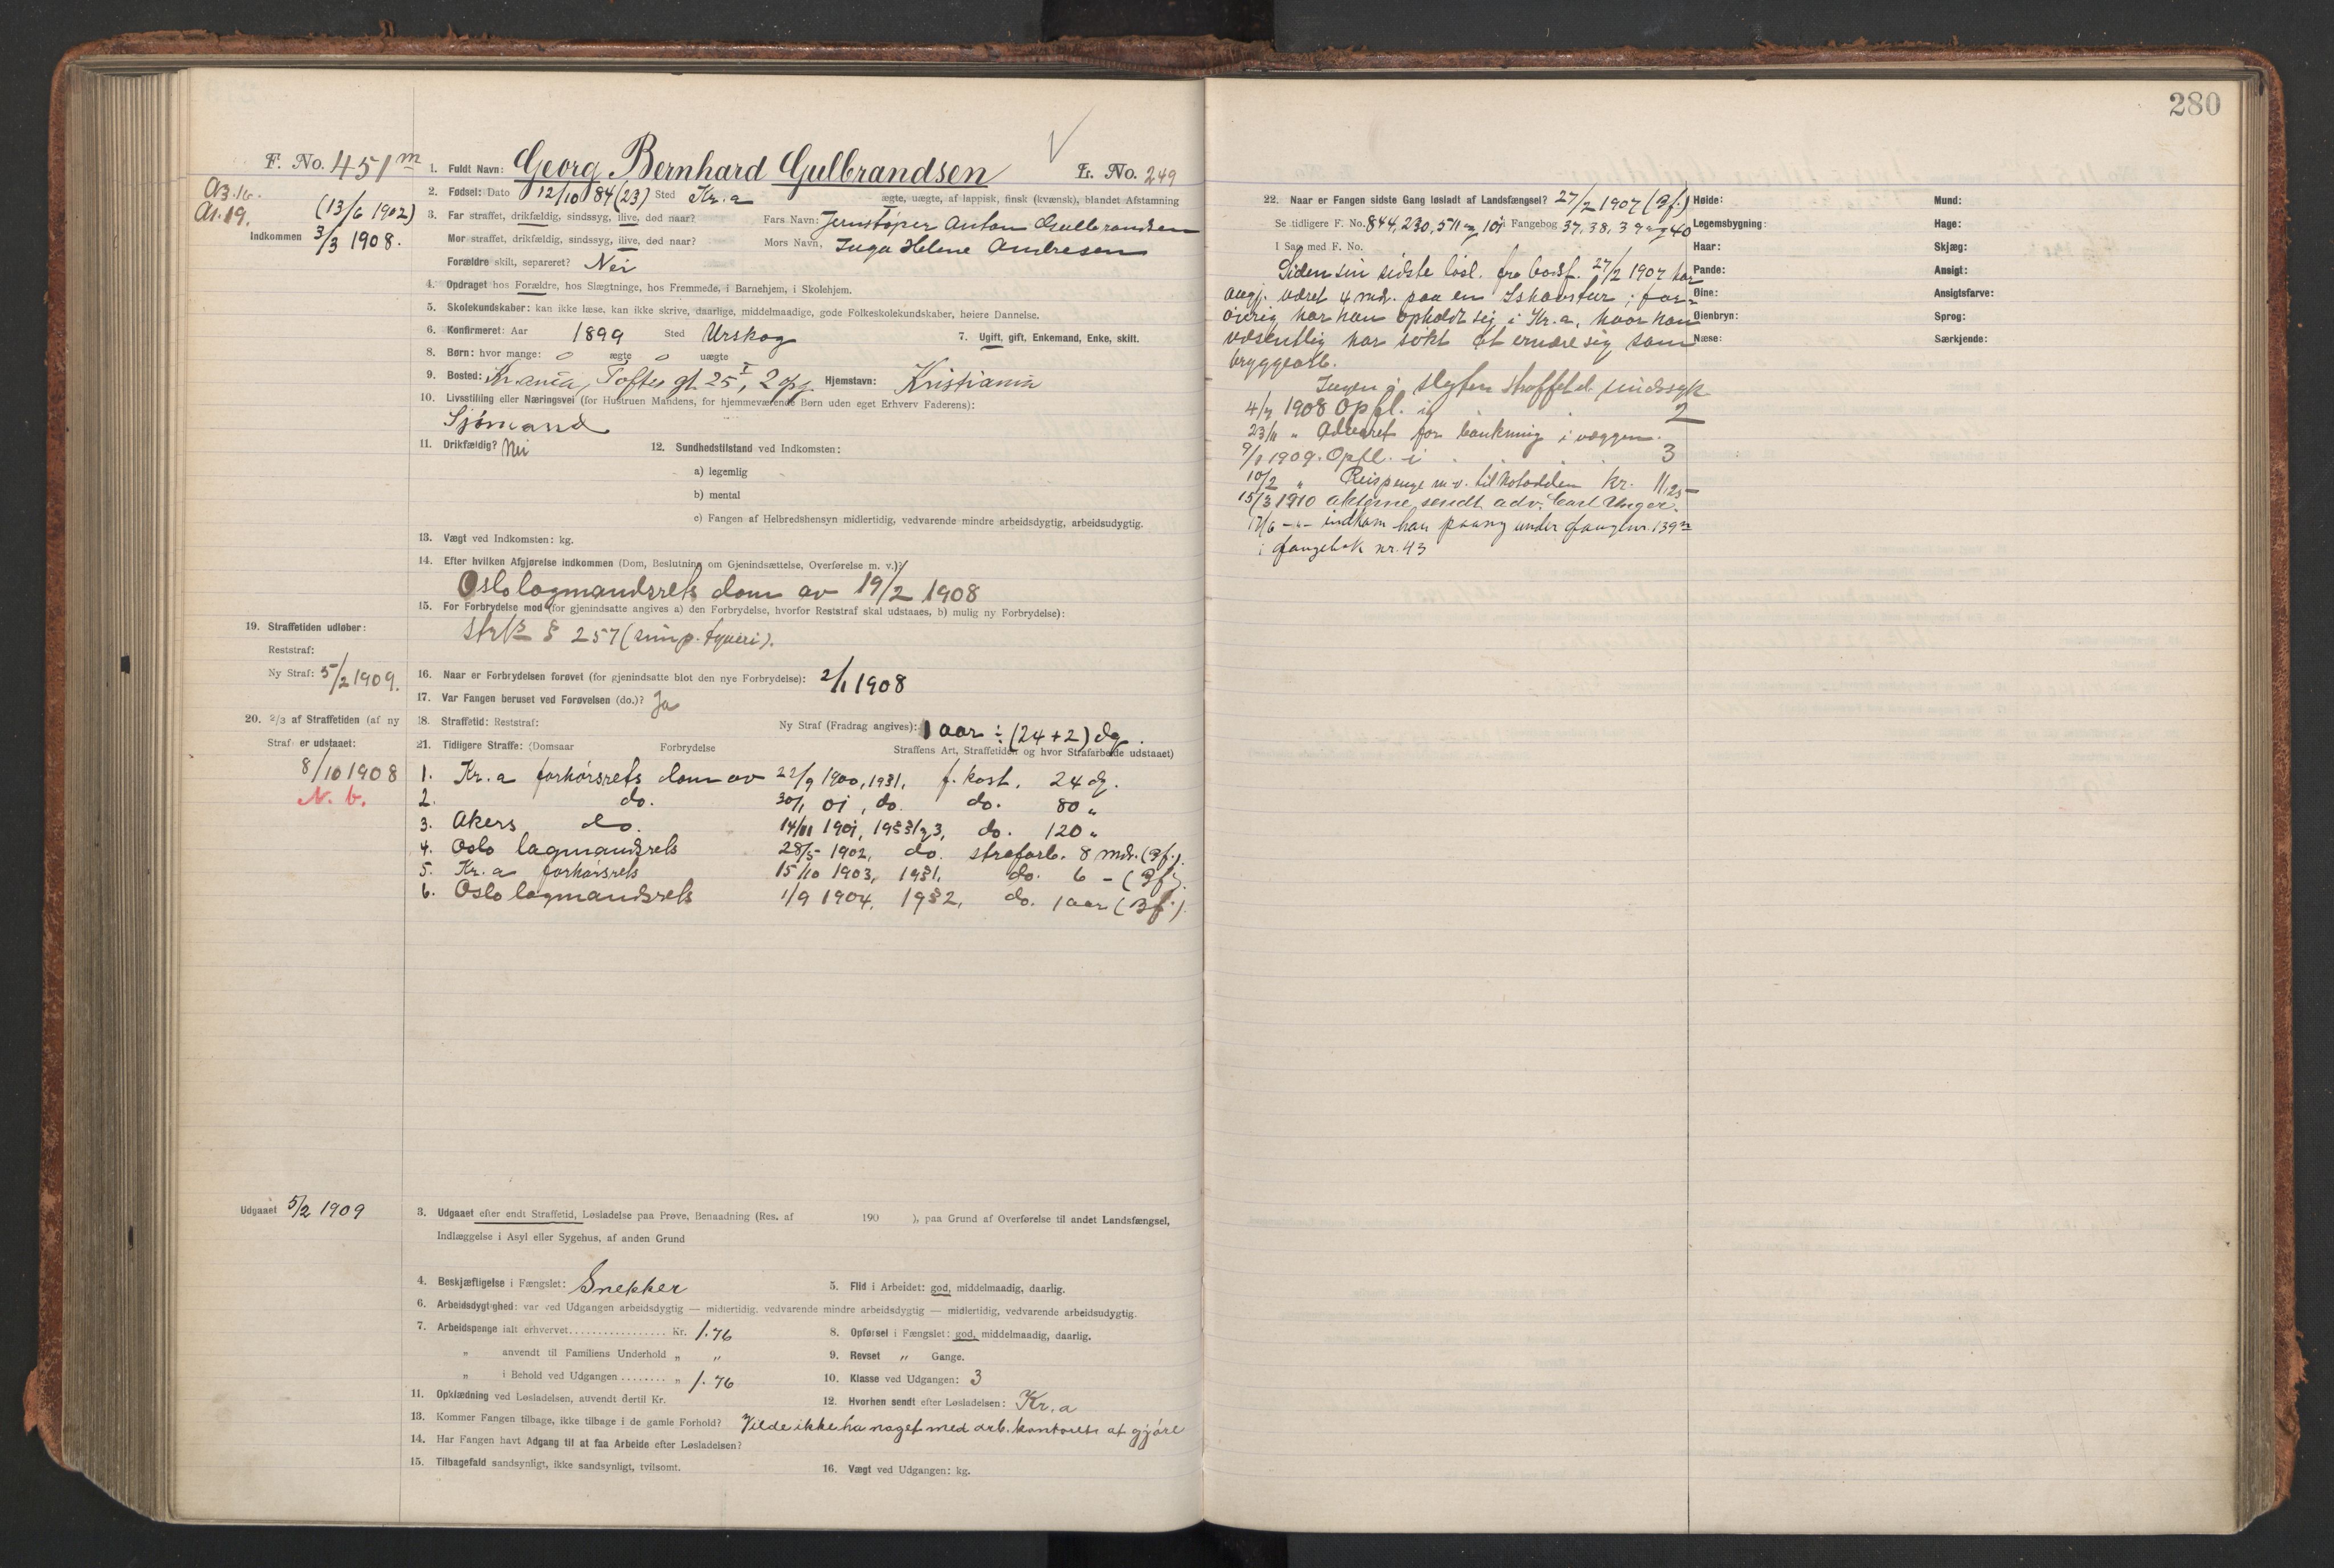 280
F. No. 451 m
1. Fuldt Navn: Georg Bernhard Gulbrandsen L. No. 249
A3.16.
A1.19.
(13/6 1902)
Indkommen 3/3 1908.
2. Fødsel: Dato 12/10 84 (23) Sted Kr.a ægte, uægte, af lappisk, finsk (kvænsk), blandet Afstamning
3. Far straffet, drikfældig, sindssyg, ilive, død naar? Fars Navn: Jernstøper Anton Gulbrandsen
Mor straffet, drikfældig, sindssyg, ilive, død naar? Mors Navn, Inga Helene Andresen
Forældre skilt, separeret? Nei
4. Opdraget hos Forældre, hos Slægtninge, hos Fremmede, i Barnehjem, i Skolehjem.
5. Skolekundskaber: kan ikke læse, kan ikke skrive, daarlige, middelmaadige, gode Folkeskolekundskaber, høiere Dannelse.
6. Konfirmeret: Aar 1899 Sted Urskog 7. Ugift, gift, Enkemand, Enke, skilt.
8. Børn: hvor mange: 0 ægte 0 uægte
9. Bosted: Kr.ania, Toftes gt. 25 I, 2 opg. Hjemstavn: Kristiania
10. Livsstilling eller Næringsvei (for Hustruen Mandens, for hjemmeværende Børn uden eget Erhverv Faderens):
Sjömand
11. Drikfældig? Nei 12. Sundhedstilstand ved Indkomsten:
a) legemlig
b) mental
c) Fangen af Helbredshensyn midlertidig, vedvarende mindre arbeidsdygtig, arbeidsudygtig.
13. Vægt ved Indkomsten: kg.
14. Efter hvilken Afgjørelse indkommen (Dom, Beslutning om Gjenindsættelse, Overførelse m. v.):
Oslo lagmandsrets dom av 19/2 1908
15. For Forbrydelse mod (for gjenindsatte angives a) den Forbrydelse, hvorfor Reststraf skal udstaaes, b) mulig ny Forbrydelse):
Strl § 257 (simp. tyveri).
19. Straffetiden udløber:
Reststraf:
Ny Straf: 5/2 1909.
16. Naar er Forbrydelsen forøvet (for gjenindsatte blot den nye Forbrydelse): 2/1 1908
17. Var Fangen beruset ved Forøvelsen (do.)? Ja
20. 2/3 af Straffetiden (af ny
Straf) er udstaaet:
8/10 1908
N. b.
18. Straffetid: Reststraf: Ny Straf (Fradrag angives): 1 aar ÷ (24 + 2) dg.
21. Tidligere Straffe: (Domsaar Forbrydelse Straffens Art, Straffetiden og hvor Strafarbeide udstaaet)
1. Kr.a forhörsrets dom av 22/9 1900, 19§1, f. kost. 24 dg.
2. do. 30/1 01, do. do. 80 "
3. Akers do. 14/11 1901, 19§§1, 3, do. 120 "
4. Oslo lagmandsrets 28/5 1902, do. strafarb. 8 mdr. (Bf.).
5. Kr.a forhörsrets 15/10 1903, 19§1, do. 6 - (Bf.).
6. Oslo lagmandsrets 1/9 1904, 19§2, do. 1 aar (Bf.).
Udgaaet 5/2 1909
3. Udgaaet efter endt Straffetid, Løsladelse paa Prøve, Benaadning (Res. af 190 ), paa Grund af Overførelse til andet Landsfængsel,
Indlæggelse i Asyl eller Sygehus, af anden Grund
4. Beskjæftigelse i Fængslet: Snekker 5. Flid i Arbeidet: god, middelmaadig, daarlig.
6. Arbeidsdygtighed: var ved Udgangen arbeidsdygtig — midlertidig, vedvarende mindre arbeidsdygtig — midlertidig, vedvarende arbeidsudygtig.
7. Arbeidspenge ialt erhvervet................. Kr. 1.76 8. Opførsel i Fængslet: god, middelmaadig, daarlig.
" anvendt til Familiens Underhold " " 9. Revset " Gange.
" i Behold ved Udgangen ........ " 1.76 10. Klasse ved Udgangen: 3
11. Opklædning ved Løsladelsen, anvendt dertil Kr. 12. Hvorhen sendt efter Løsladelsen: Kr.a
13. Kommer Fangen tilbage, ikke tilbage i de gamle Forhold? Vilde ikke ha noget med arb. kontoret at gjöre
14. Har Fangen havt Adgang til at faa Arbeide efter Løsladelsen?
15. Tilbagefald sandsynligt, ikke sandsynligt, tvilsomt. 16. Vægt ved Udgangen: kg.
22. Naar er Fangen sidste Gang løsladt af Landsfængsel? 27/2 1907 (Bf.)
Se tidligere F. No. 844, 230, 511 og 101 Fangebog 37, 38, 39 og 40
I Sag med F. No.
Siden sin sidste lösl. fra Bodsf. 27/2 1907 har
angj. været 4 mdr. paa en Ishavstur; for-
övrig har han opholdt sig i Kr.a, hvor han
væsentlig har sökt at ernære sig som
bryggearb.
Ingen i slegten straffet el. sindssyk
4/7 1908 Opfl. i 2
23/11 " Advaret for bankning i væggen.
9/1 1909. Opfl. i . . . 3
10/2 " Reispenge m.v. til Notodden Kr. 11,25
15/3 1910 akterne sendt adv. Carl Unger.
17/6 -"- indkom han paany under fangenr. 139 m
i fangebok nr. 43
Høide:
Legemsbygning:
Haar:
Pande:
Øine:
Øienbryn:
Næse:
Mund:
Hage:
Skjæg:
Ansigt:
Ansigtsfarve:
Sprog:
Særkjende: